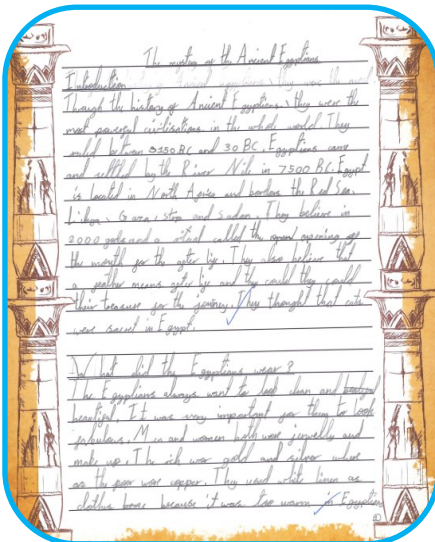 The mystery of the Ancient Egyptians
Introduction
Through the history of Ancient Egyptians, they were the
most powerful civilisations in the whole world They
ruled between 3150 BC and 30 BC. Egyptians came
and settled by the River Nile in 7500 BC. Egypt
is located in North Africa and borders the Red Sea,
Libya, Gaza, strip and Sudan. They believe in
2000 gods and a ritual called the opening of
the mouth for the after life. They also believe that
a feather means after life and they could they could
their treasure for the journey. They thought that cats
were sacred in Egypt.
What did the Egyptians wear?
The Egyptians always want to look clean and
beautiful. It was very important for them to look
fabulous. Men and women both wore jewelly and
make up. The rich wore gold and silver where
as the poor wore copper. They used white linen as
clothes because it was too warm in Egyptian